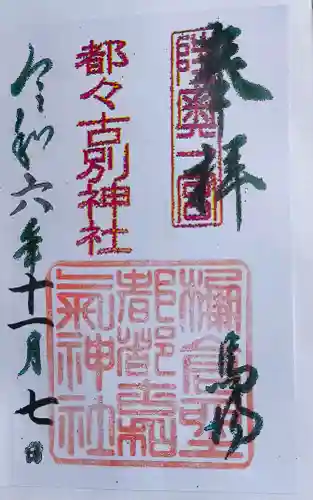 奉拝
陸奥一宮
都々古別神社
馬場
都都古和氣神社
令和六年十一月七日